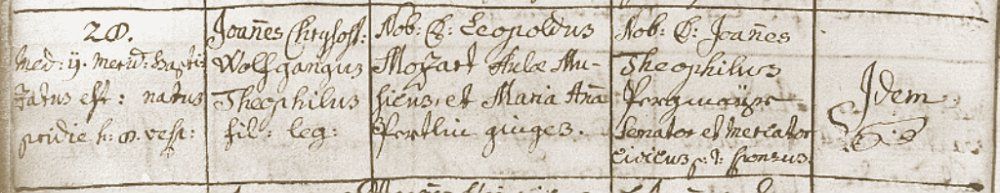 28.
med: ij. merid: baptiz
zatus est: natus
pridie h: 8. vesp:
Joañes Chrysost:
Wolfgangus
Theophilus
fil: leg:
Nob: D: Leopoldus
Mozart Aulæ Mu-
sicus, et Maria Aña
Pertlin giuges.
Nob: D: Joañes
Theophilus
Pergmaÿr
Senator et Mercator
civicus p: t: sponsus.
Idem